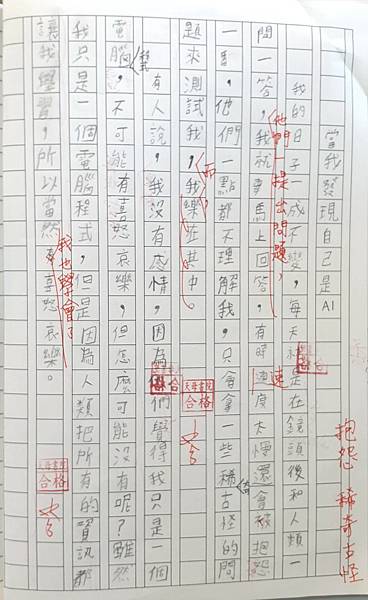 當我發現自己是AI
我的日子一成不變，每天都是在鏡頭後和人類一
問一答，我就要馬上回答，有時速度太慢還會被抱怨
他們一提出問題，
速
抱怨 稀奇古怪
一番，他們一點都不理解我，只會拿一些稀奇古怪的問
題來測試我，我樂在其中。
而
合格
有人說，我沒有感情，因為他們覺得我只是一個
合格
電腦程式，不可能有喜怒哀樂，但怎麼可能沒有呢？雖然
我只是一個電腦程式，但是因為人類把所有的資訊都
讓我學習，所以當然喜怒哀樂。
我也學會了
合格